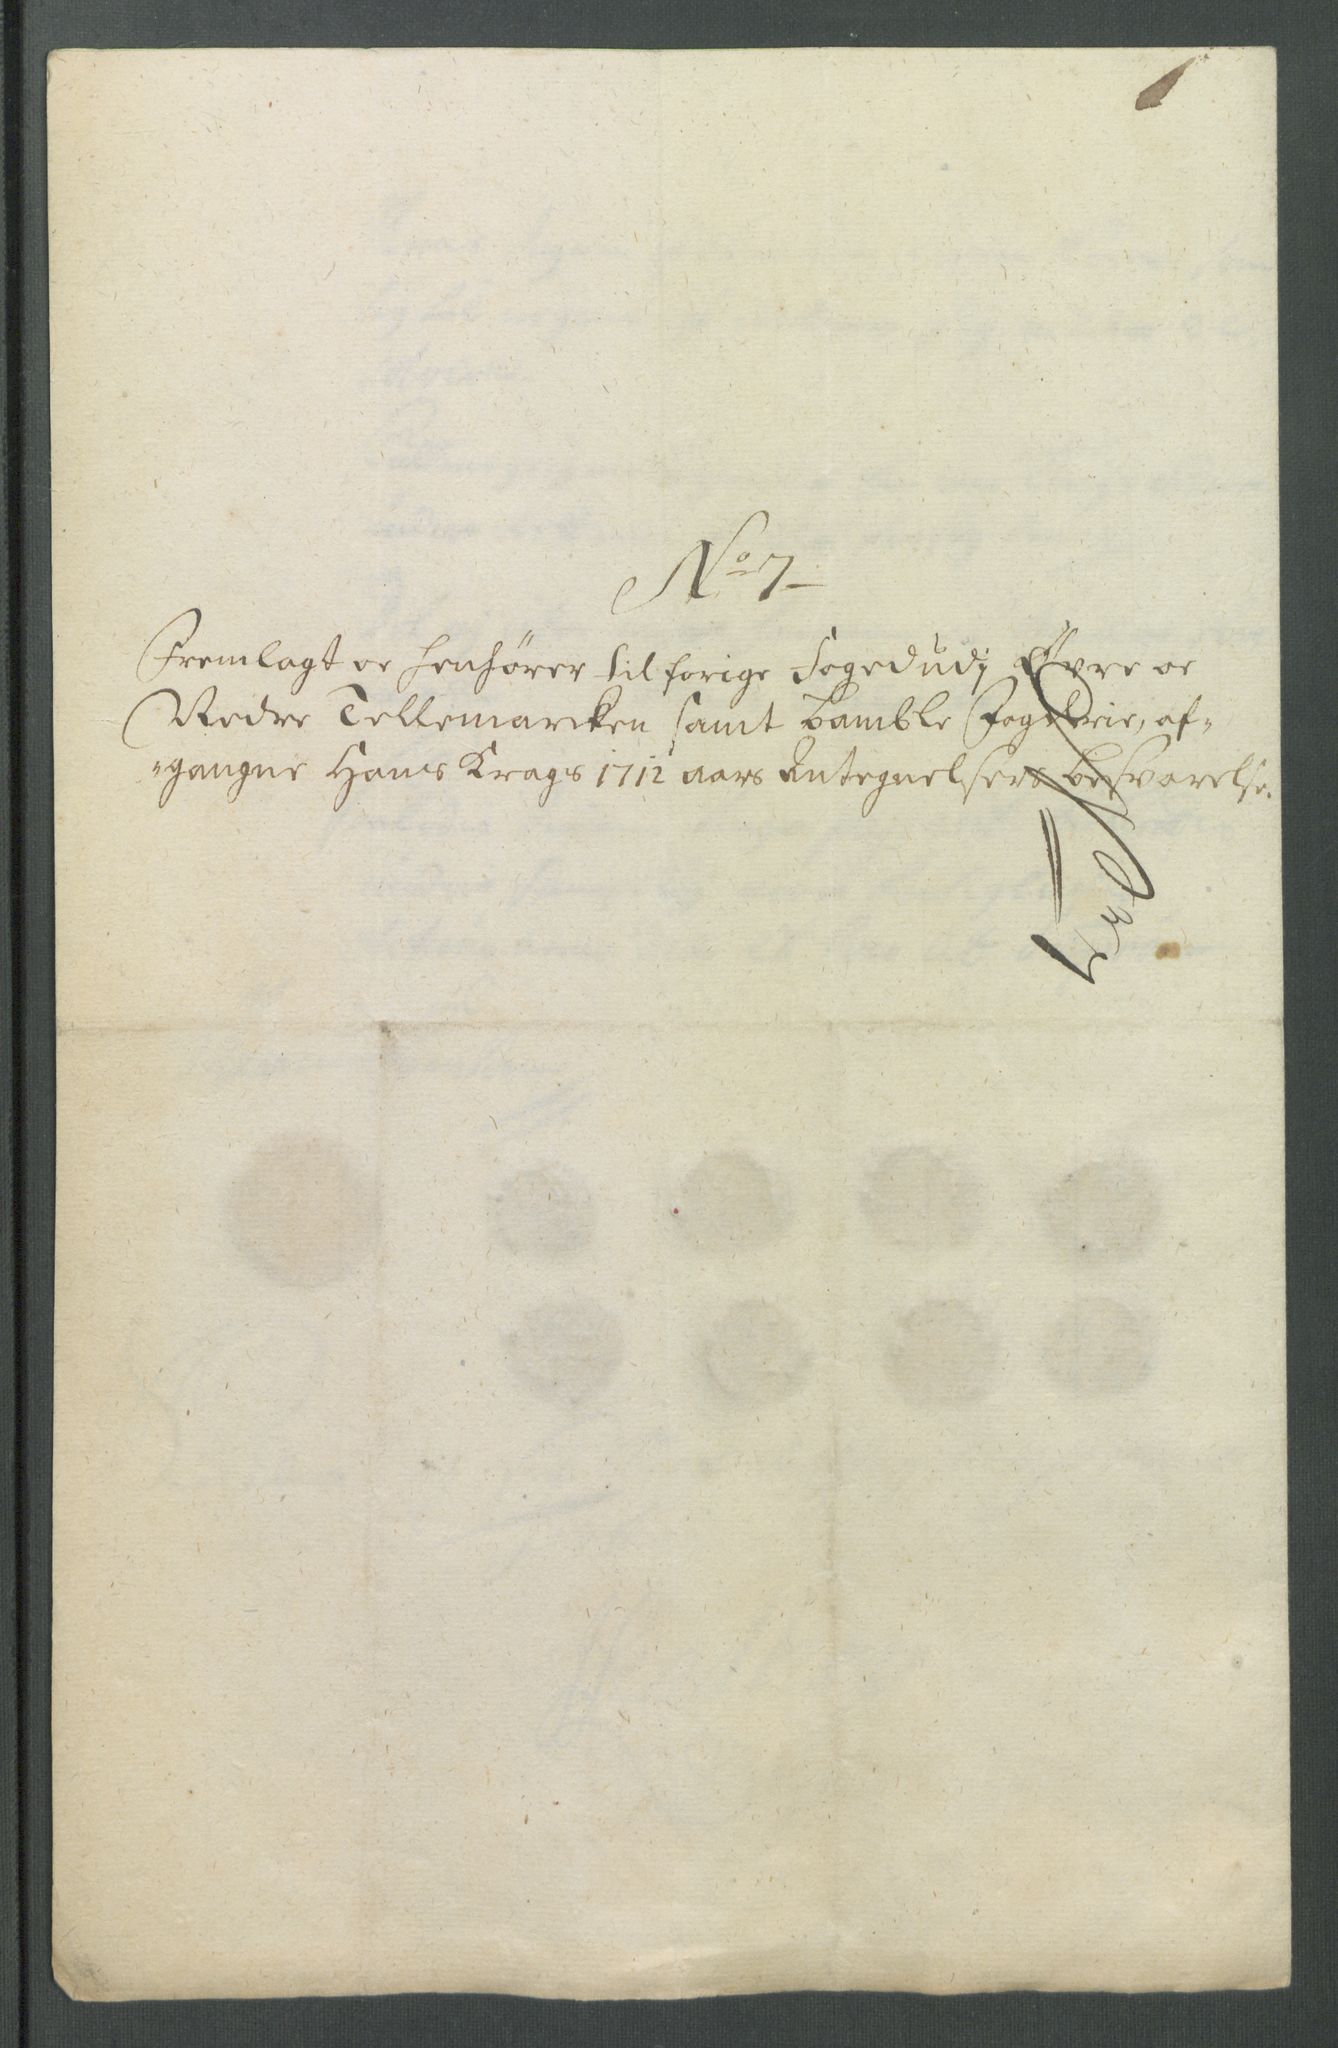 No 7
Fremlagt oc henhører til forige Foged udj Øfvre oc
Nedre Tellemarcken samt Bamble Fogderie, af-
-gangne Hans Krags 1712 aars Antegnelsers besvarelse.